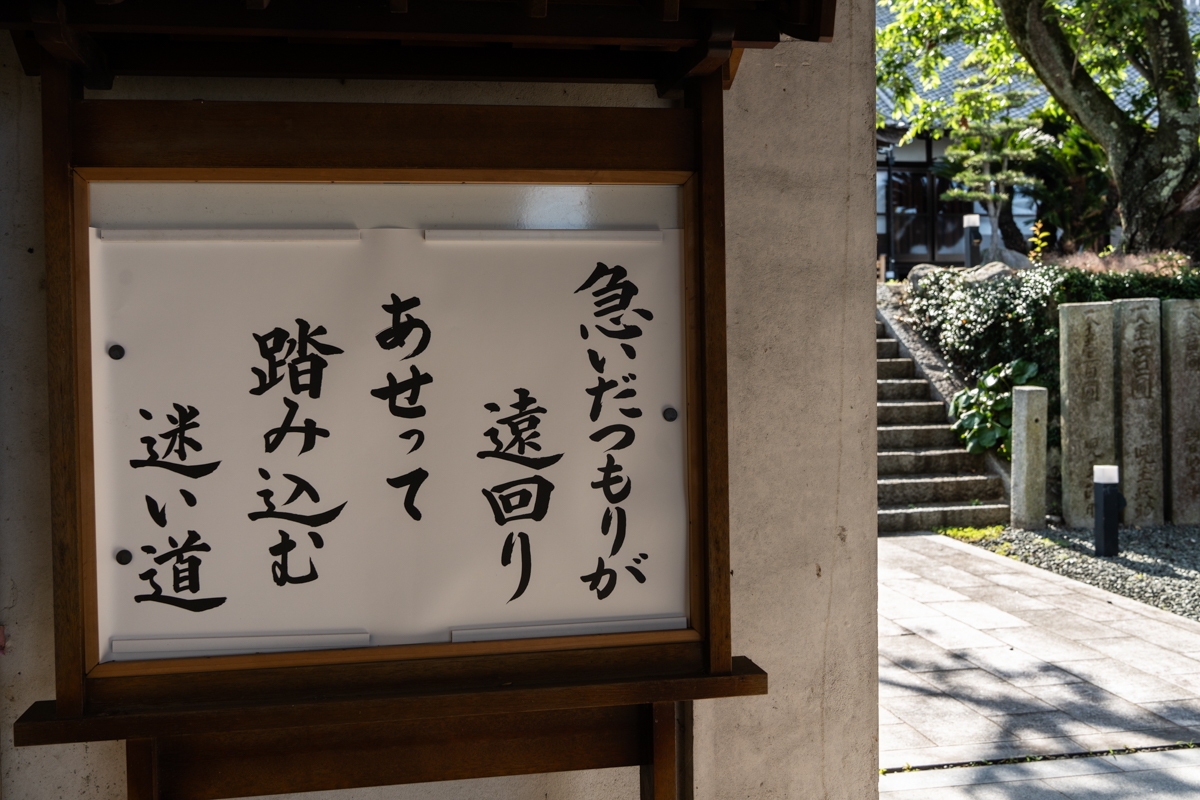 急いだつもりが
遠回り
あせって
踏み込む
迷い道